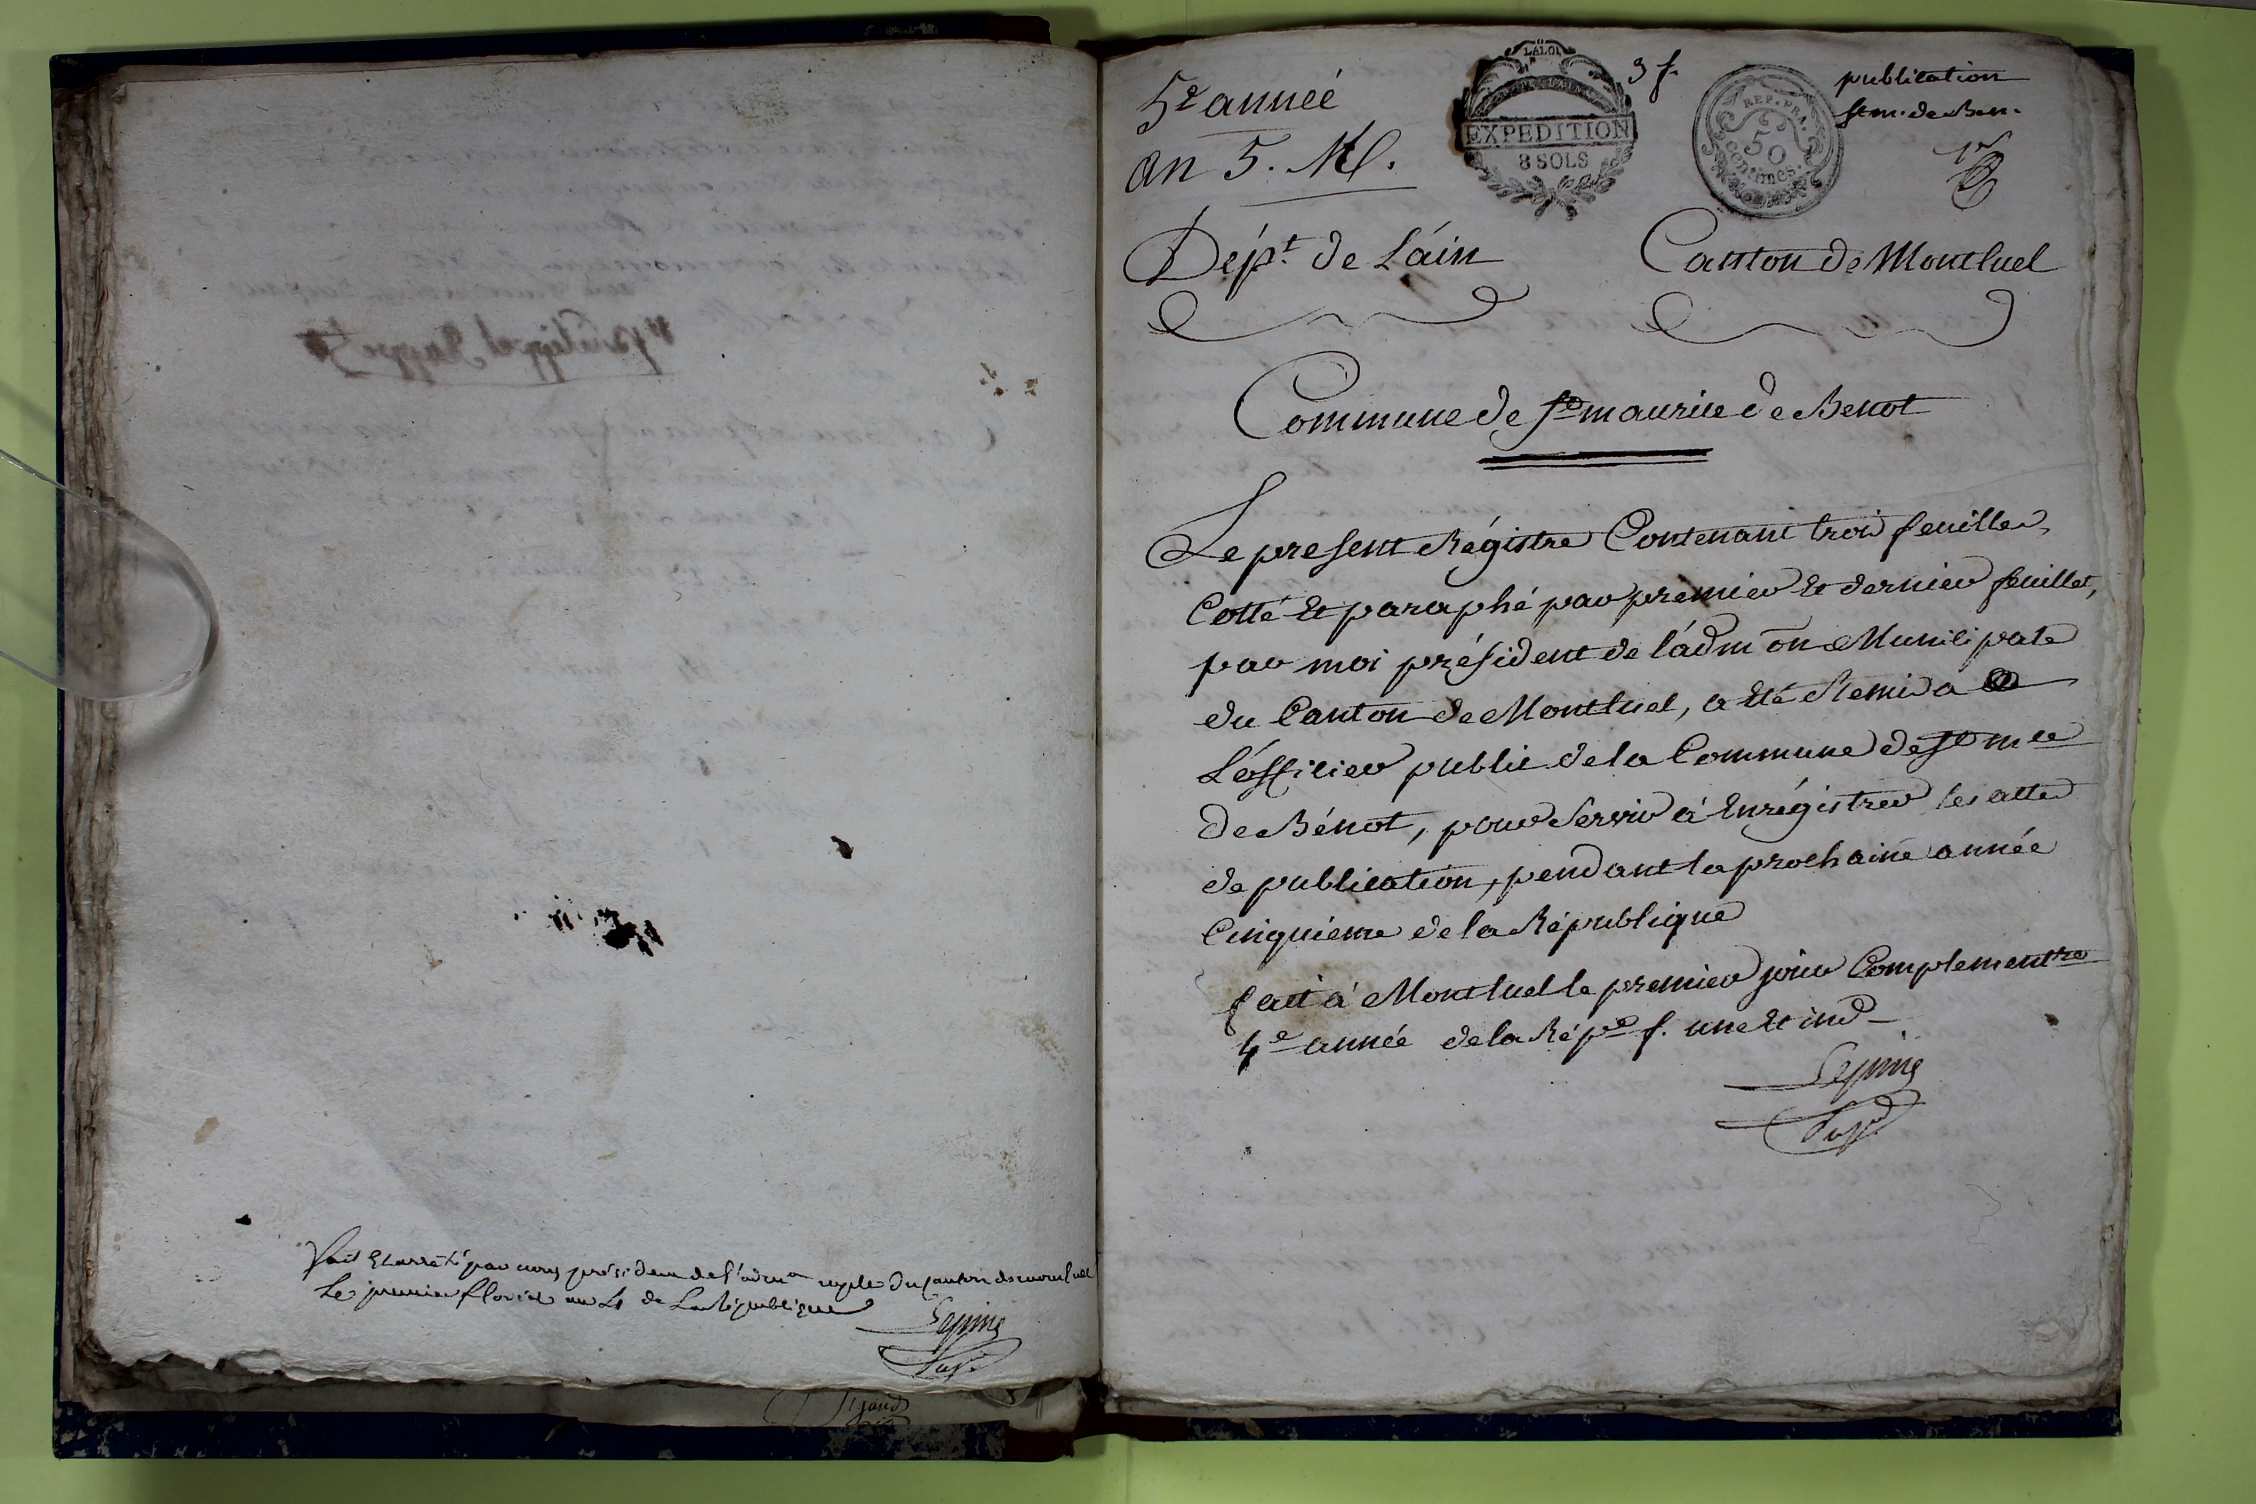 fait et arrété par nous président de l'adm.on mple du canton de montluel
Le premier floréal an 4 de La République
Lepine
5e année
3 f.
publication
st m. de Ben.
an 5. M.
1er
LA LOI
EXPEDITION
8 SOLS
REP. FRA.
50
centimes.
Dépt. de L'áin
Canton de Montluel
Commune de st maurice de Benot
Le present Régistre Contenant trois feuilles,
Cotté et paraphé par premier et dernier feuillet,
par moi président de l'ádmon Municipale
du Canton de Montluel, a été Remis à
L'officier public de la Commune de st mce
de Bénot, pour servir à Enrégistrer les actes
de publication, pendant la prochaine année
Cinquieme de la République
fait à Montluel le premier jour Complementre
4e année de la Répe f. une et indle
Lepine